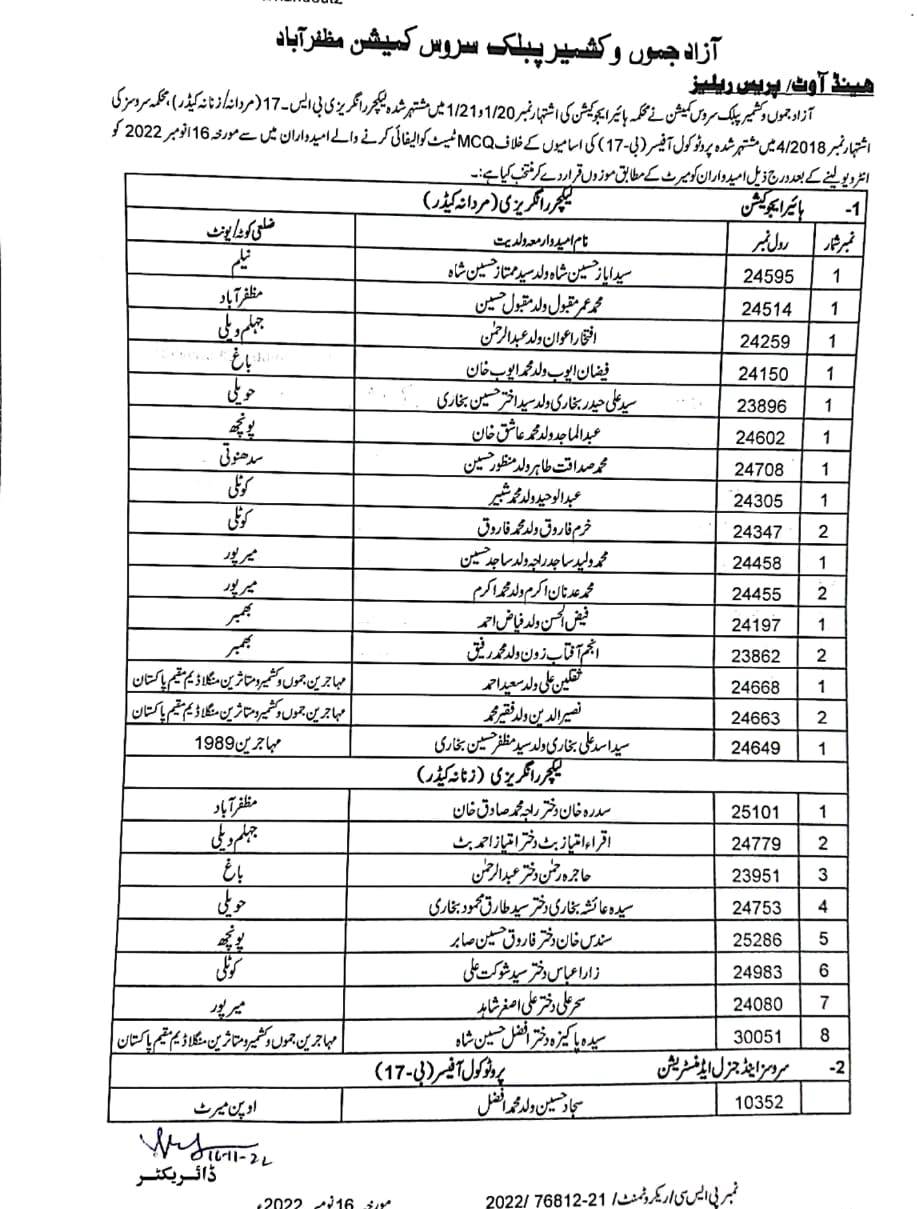 آزاد جموں و کشمیر پبلک سروس کمیشن مظفرآباد
ہینڈ آوٹ/ پریس ریلیز
آزاد جموں وکشمیر پبلک سروس کمیشن نے محکمہ ہائیر ایجوکیشن کی اشتہار نمبر 1/20 و 1/21 میں مشتہر شدہ لیکچرر انگریزی بی ایس۔17 (مردانہ/زنانہ کیڈر)، محکمہ سروسز کی
اشتہار نمبر 4/2018 میں مشتہر شدہ پروٹوکول آفیسر (بی-17) کی اسامیوں کے خلاف MCQ ٹیسٹ کوالیفائی کرنے والے امیدواران میں سے مورخہ 16 نومبر 2022 کو
انٹرویو لینے کے بعد درج ذیل امیدواران کو میرٹ کے مطابق موزوں قرار دے کر منتخب کیا ہے:۔
1- ہائیر ایجوکیشن لیکچرر انگریزی (مردانہ کیڈر)
نمبر شمار رول نمبر نام امیدوار معہ ولدیت ضلعی کوٹہ/یونٹ
1 24595 سید ایاز حسین شاہ ولد سید ممتاز حسین شاہ نیلم
1 24514 محمد عمر مقبول ولد مقبول حسین مظفرآباد
1 24259 افتخار اعوان ولد عبدالرحمٰن جہلم ویلی
1 24150 فیضان ایوب ولد محمد ایوب خان باغ
1 23896 سید علی حیدر بخاری ولد سید اختر حسین بخاری حویلی
1 24602 عبدالماجد ولد محمد عاشق خان پونچھ
1 24708 محمد صداقت طاہر ولد منظور حسین سدھنوتی
1 24305 عبدالوحید ولد محمد شبیر کوٹلی
2 24347 خرم فاروق ولد محمد فاروق کوٹلی
1 24458 محمد ولید ساجد راجہ ولد ساجد حسین میرپور
2 24455 محمد عدنان اکرم ولد محمد اکرم میرپور
1 24197 فیض الحسن ولد فیاض احمد بھمبر
2 23862 انجم آفتاب زون ولد محمد رفیق بھمبر
1 24668 ثقلین علی ولد سعید احمد مہاجرین جموں وکشمیر و متاثرین منگلا ڈیم مقیم پاکستان
2 24663 نصیر الدین ولد فقیر محمد مہاجرین جموں وکشمیر و متاثرین منگلا ڈیم مقیم پاکستان
1 24649 سید اسد علی بخاری ولد سید مظفر حسین بخاری مہاجرین 1989
لیکچرر انگریزی (زنانہ کیڈر)
1 25101 سدرہ خان دختر راجہ محمد صادق خان مظفرآباد
2 24779 اقراء امتیاز بٹ دختر امتیاز احمد بٹ جہلم ویلی
3 23951 حاجرہ رحمٰن دختر عبدالرحمٰن باغ
4 24753 سیدہ عائشہ بخاری دختر سید طارق محمود بخاری حویلی
5 25286 سندس خان دختر فاروق حسین صابر پونچھ
6 24983 زارا عباس دختر سید شوکت علی کوٹلی
7 24080 سحر علی دختر علی اصغر شاہد میرپور
8 30051 سیدہ پاکیزہ دختر افضل حسین شاہ مہاجرین جموں وکشمیر و متاثرین منگلا ڈیم مقیم پاکستان
2- سروسز اینڈ جنرل ایڈمنسٹریشن پروٹوکول آفیسر (بی-17)
10352 سجاد حسین ولد محمد افضل اوپن میرٹ
16-11-22
ڈائریکٹر
نمبر پی ایس سی/ریکروٹمنٹ/ 2022/ 76812-21 مورخہ 16 نومبر 2022ء